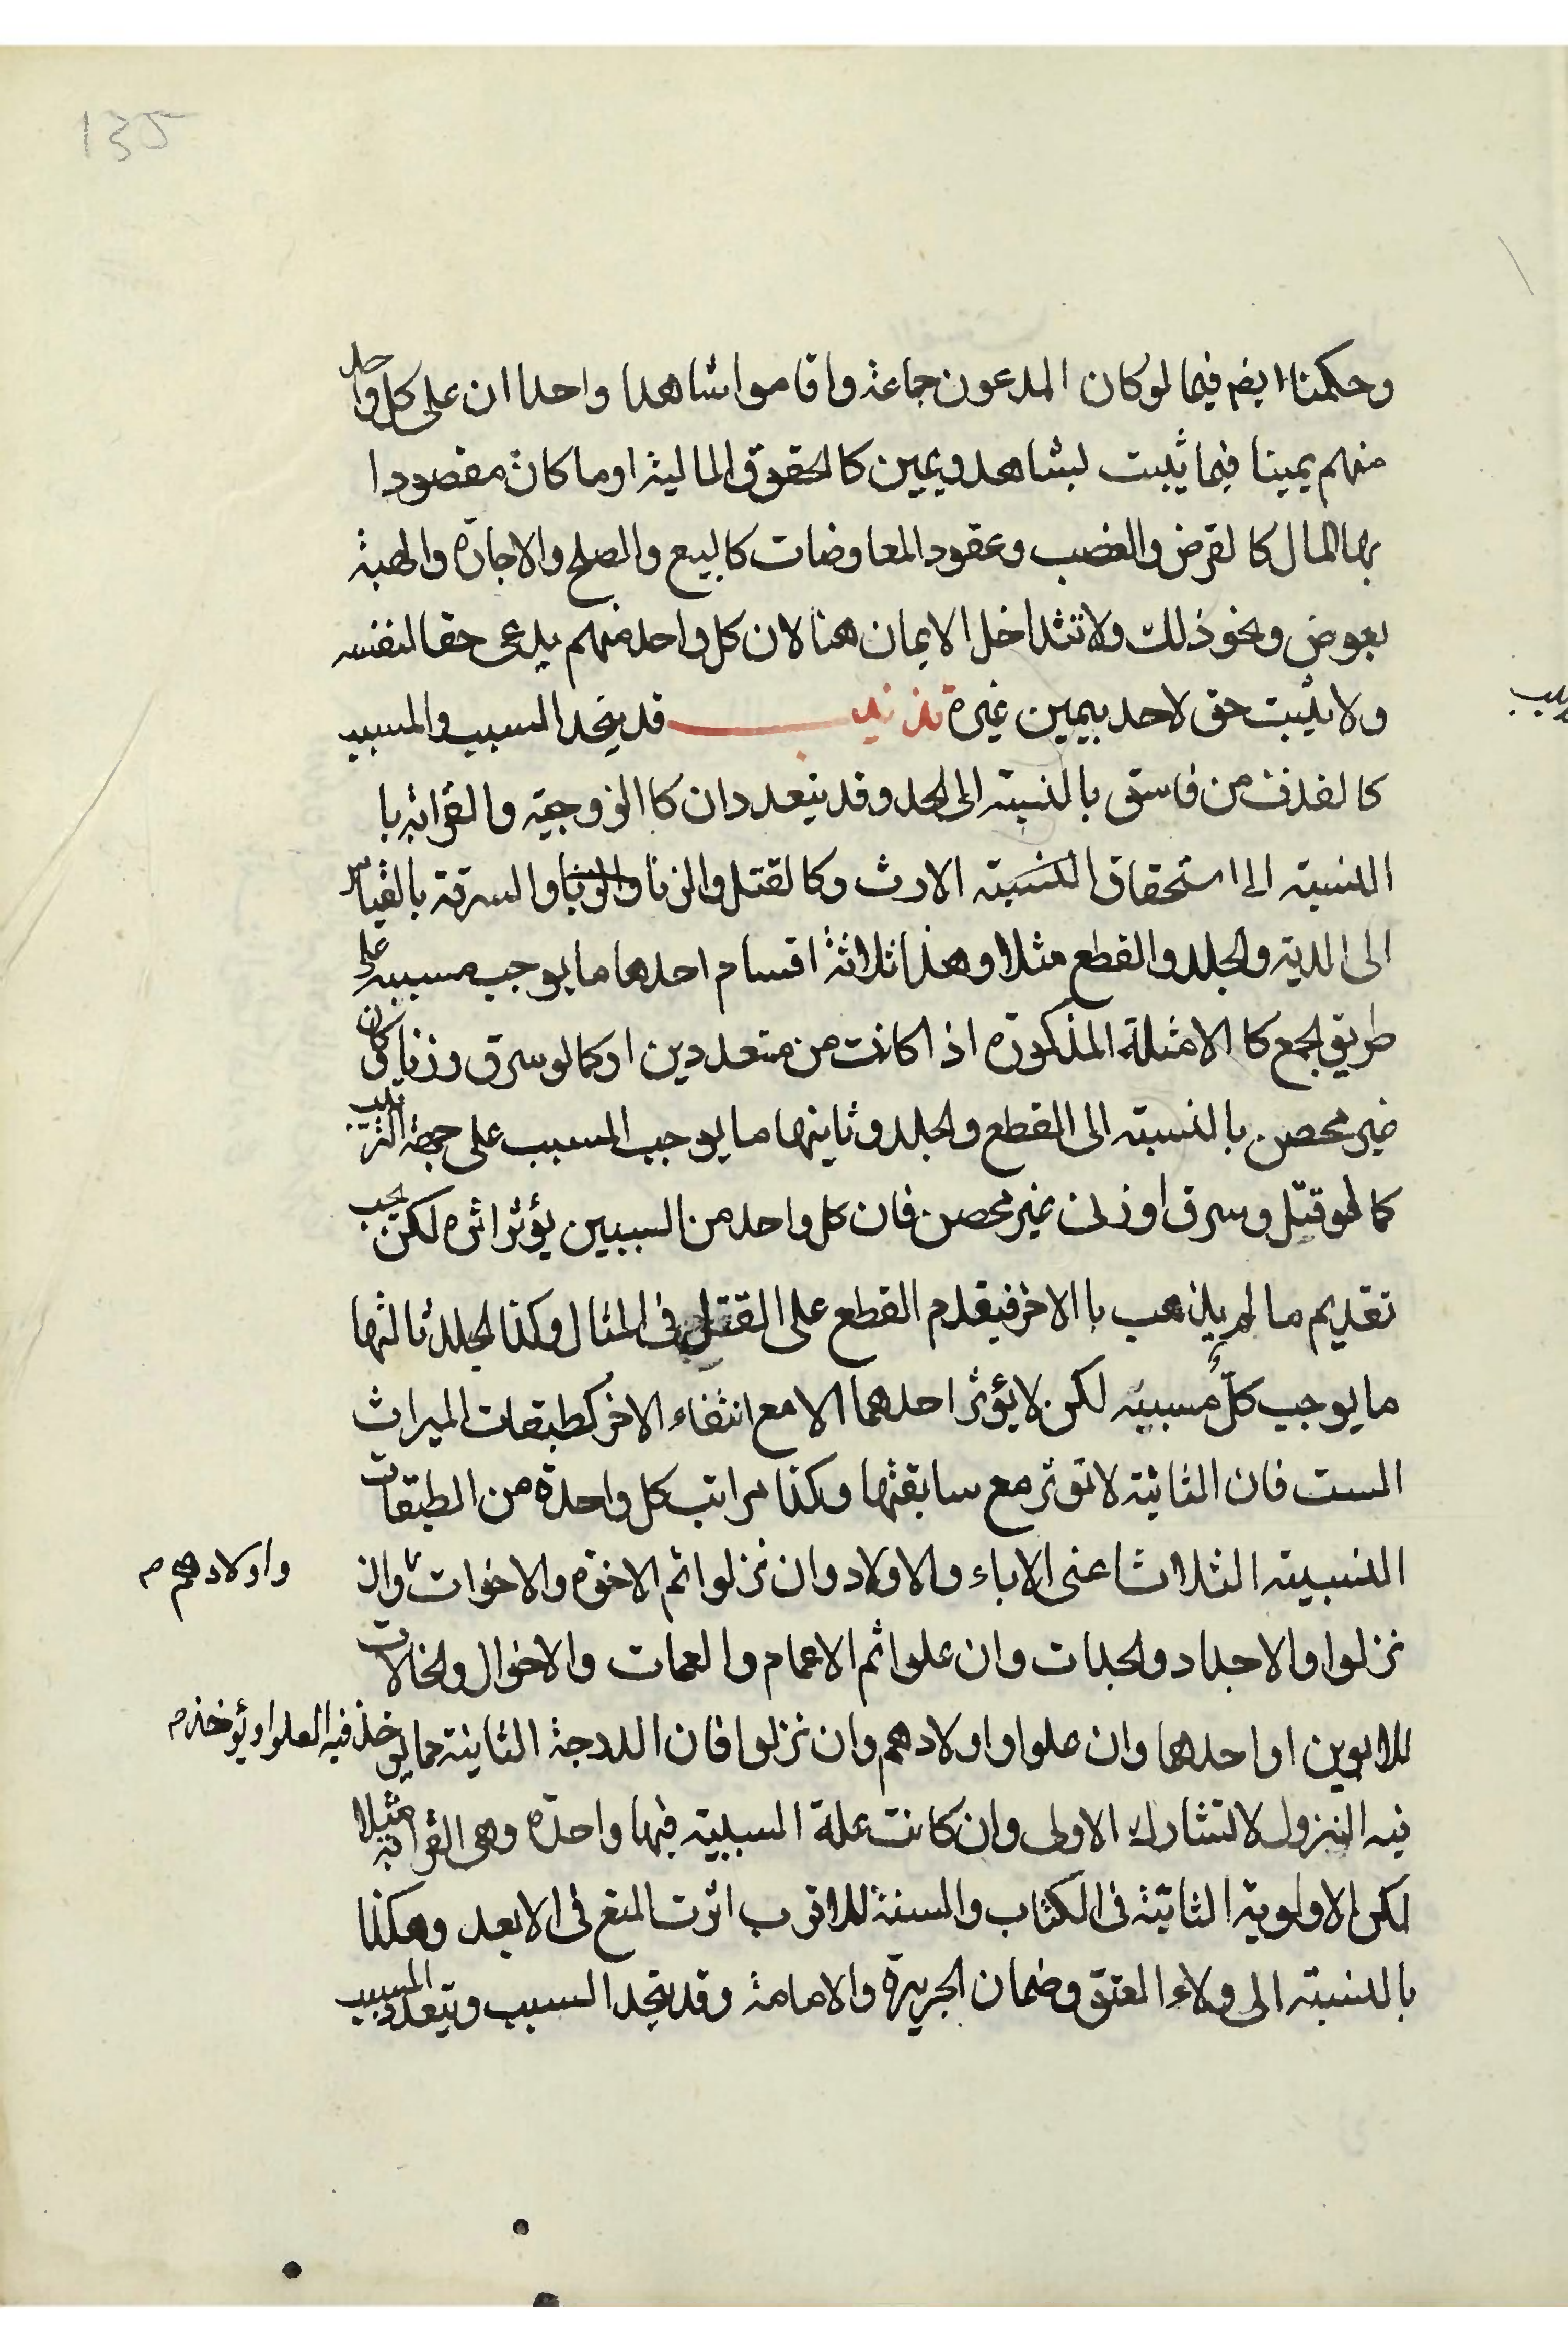 135
وحكمنا ايضم فيما لو كان المدعون جماعة واقاموا شاهدا واحدا ان على كل واحد
منهم يمينا فيما يثبت بشاهد ويمين كالحقوق المالية او ما كان مقصودا
بها المال كالقرض والغصب وعقود المعاوضات كالبيع والصلح والاجارة والهبة
بعوض ونحو ذلك ولا تتداخل الايمان هنا لان كل واحد منهم يدعى حقا لنفسه
ولا يثبت حق لاحد بيمين غيره تذنيب قد يتحد السبب والمسبب
كالقذف من فاسق بالنسبته الى الحد وقد يتعددان كاالزوجية والقرابة با
النسبته الى استحقاق النسبته الارث وكالقتل والزنا والزنا والسرقة بالقياس
الى الدية والجلد والقطع مثلا وهذا ثلاثة اقسام احدها ما يوجب مسببه على
طريق الجمع كا الامثلة المذكورة اذا كانت من متعددين او كما لو سرق وزنا وكان
غير محصن بالنسبته الى القطع والجلد وثانيها ما يوجب المسبب على جهة الترتيب
كما لو قتل وسرق او زنى غير محصن فان كل واحد من السببين يؤثر اثره لكن يجب
تقديم ما لم يذهب باالاخر فيقدم القطع على القتل فى المثال وكذا الجلد ثالثها
ما يوجب كلٌّ مسببه لكن لا يؤثر احدهما الا مع انتفاء الاخر كطبقات الميراث
الست فان الثانية لا توثر مع سابقتها وكذا مراتب كل واحدة من الطبقات
النسبية الثلاث اعنى الاباء والاولاد وان نزلوا ثم الاخوة والاخوات وان
واولادهم م
نزلوا والاجداد والجدات وان علوا ثم الاعمام والعمات والاخوال والخالات
للابوين او احدها وان علوا واولادهم وان نزلوا فان الدرجة الثانية مما يوخذ فيه العلو او يؤخذ م
فيه النزول لا تشارك الاولى وان كانت علة السببية فيها واحدة وهى القرابة مثلا
لكن الاولوية الثابتة فى الكتاب والسنة للاقرب اثرت المنع فى الابعد وهكذا
بالنسبته الى ولاء العتق وضمان الجريرة والامامة وقد يتحد السبب ويتعدد المسبب